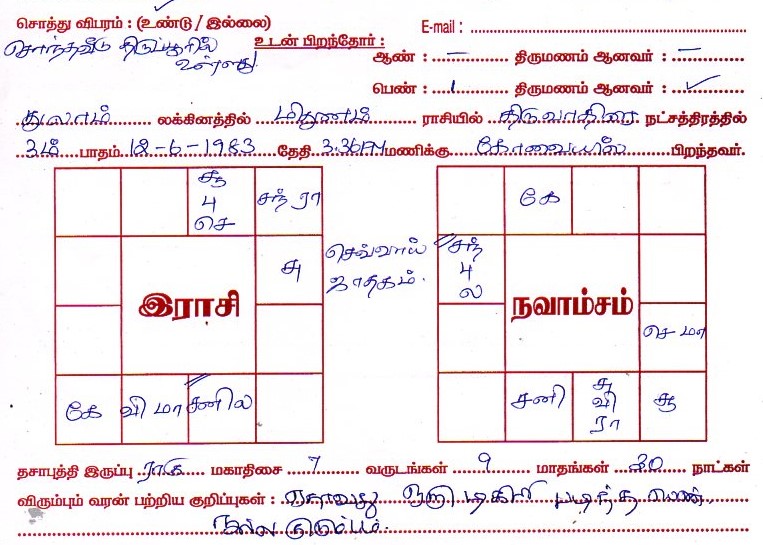 சொத்து விபரம் : (உண்டு / இல்லை) E-mail :
சொந்தவீடு திருப்பூரில் உள்ளது
உடன் பிறந்தோர் :
ஆண் : — திருமணம் ஆனவர் : —
பெண் : 1 திருமணம் ஆனவர் : ✓
துலாம் லக்கினத்தில் மிதுனம் ராசியில் திருவாதிரை நட்சத்திரத்தில்
3ம் பாதம் 12-6-1983 தேதி 3.36PM மணிக்கு கோவையில் பிறந்தவர்.
சூ
பு
செ
சந் ரா
சு
இராசி
கே
வி மா
சனி ல
செவ்வாய்
ஜாதகம்.
கே
சந்
பு
ல
நவாம்சம்
செ மா
சனி
சு
வி
ரா
சூ
தசாபுத்தி இருப்பு ராகு மகாதிசை 7 வருடங்கள் 9 மாதங்கள் 30 நாட்கள்
விரும்பும் வரன் பற்றிய குறிப்புகள் : ஏதாவது ஒரு டிகிரி படித்த பெண்,
நல்ல குடும்பம்.